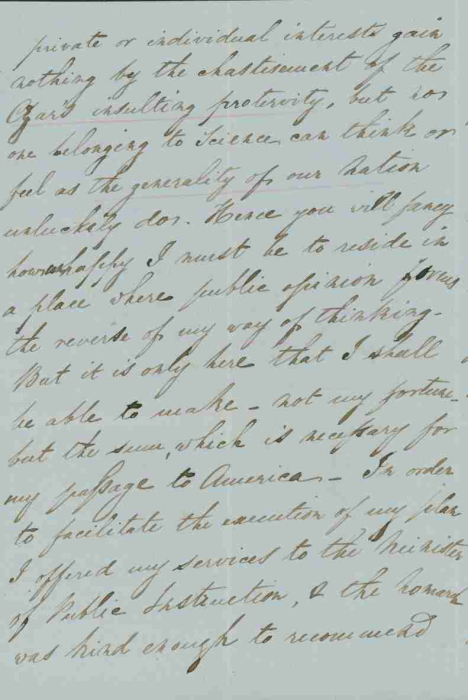 private or individual interests gain
nothing by the chastisement of the
Czar's insulting protervity, but no
one belonging to Science can think or
feel as the generality of our Nation
unluckily do. Hence you will fancy
how unhappy I must be to reside in
a place where public opinion forms
the reverse of my way of thinking.
But it is only here that I shall
be able to make - not my fortune -
but the sum, which is necessary for
my passage to America - In order
to facilitate the execution of my plan
I offered my services to the Minister
of Public Instruction, & the
was kind enough to recommend